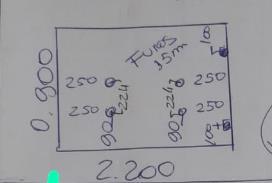 Furos
15m
100
0.900
250
250
224
90
224
90
250
250
100
2.200